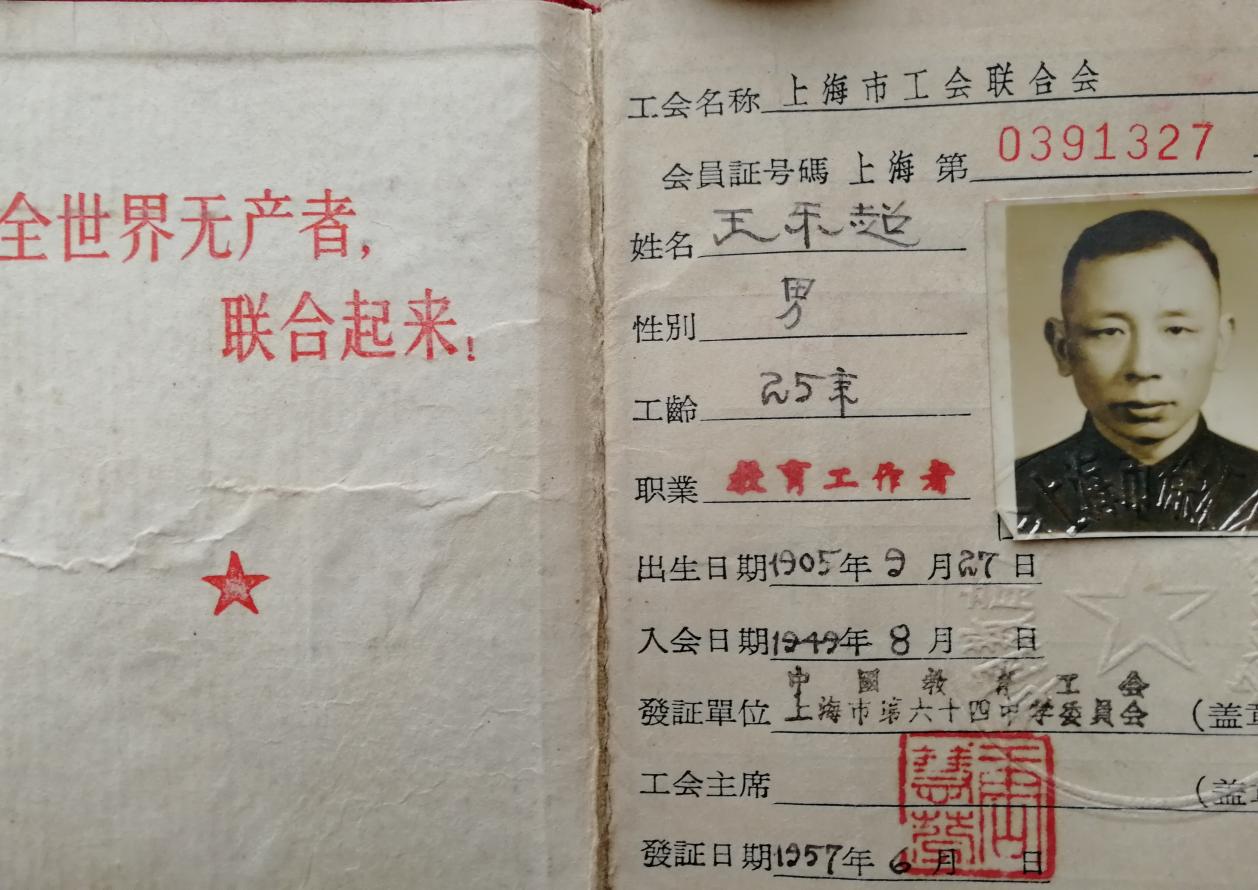 全世界无产者,
联合起来!
工会名称 上海市工会联合会
会員証号碼 上海 第 0391327
姓名 王乐超
性別 男
工齡 25年
职業 教育工作者
出生日期1905年9月27日
入会日期1949年8月 日
中國教育工会
發証單位 上海市第六十四中学委員会 (盖章
工会主席 (盖章
發証日期1957年6月 日